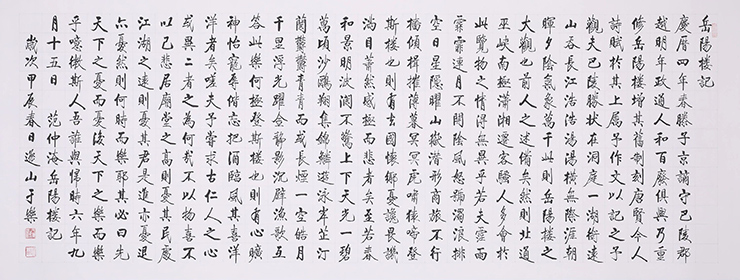 岳陽樓記
慶曆四年春滕子京謫守巴陵郡
越明年政通人和百廢俱興乃重
修岳陽樓增其舊制刻唐賢今人
詩賦於其上屬予作文以記之予
觀夫巴陵勝狀在洞庭一湖銜遠
山吞長江浩浩湯湯橫無際涯朝
暉夕陰氣象萬千此則岳陽樓之
大觀也前人之述備矣然則北通
巫峽南極瀟湘遷客騷人多會於
此覽物之情得無異乎若夫霪雨
霏霏連月不開陰風怒號濁浪排
空日星隱曜山嶽潛形商旅不行
檣傾楫摧薄暮冥冥虎嘯猿啼登
斯樓也則有去國懷鄉憂讒畏譏
滿目蕭然感極而悲者矣至若春
和景明波瀾不驚上下天光一碧
萬頃沙鷗翔集錦鱗遊泳岸芷汀
蘭鬱鬱青青而或長煙一空皓月
千里浮光躍金靜影沉璧漁歌互
答此樂何極登斯樓也則有心曠
神怡寵辱偕忘把酒臨風其喜洋
洋者矣嗟夫予嘗求古仁人之心
或異二者之為何哉不以物喜不
以己悲居廟堂之高則憂其民處
江湖之遠則憂其君是進亦憂退
亦憂然則何時而樂耶其必曰先
天下之憂而憂後天下之樂而樂
乎噫微斯人吾誰與歸時六年九
月十五日 范仲淹岳陽樓記
歲次甲春日山于樂